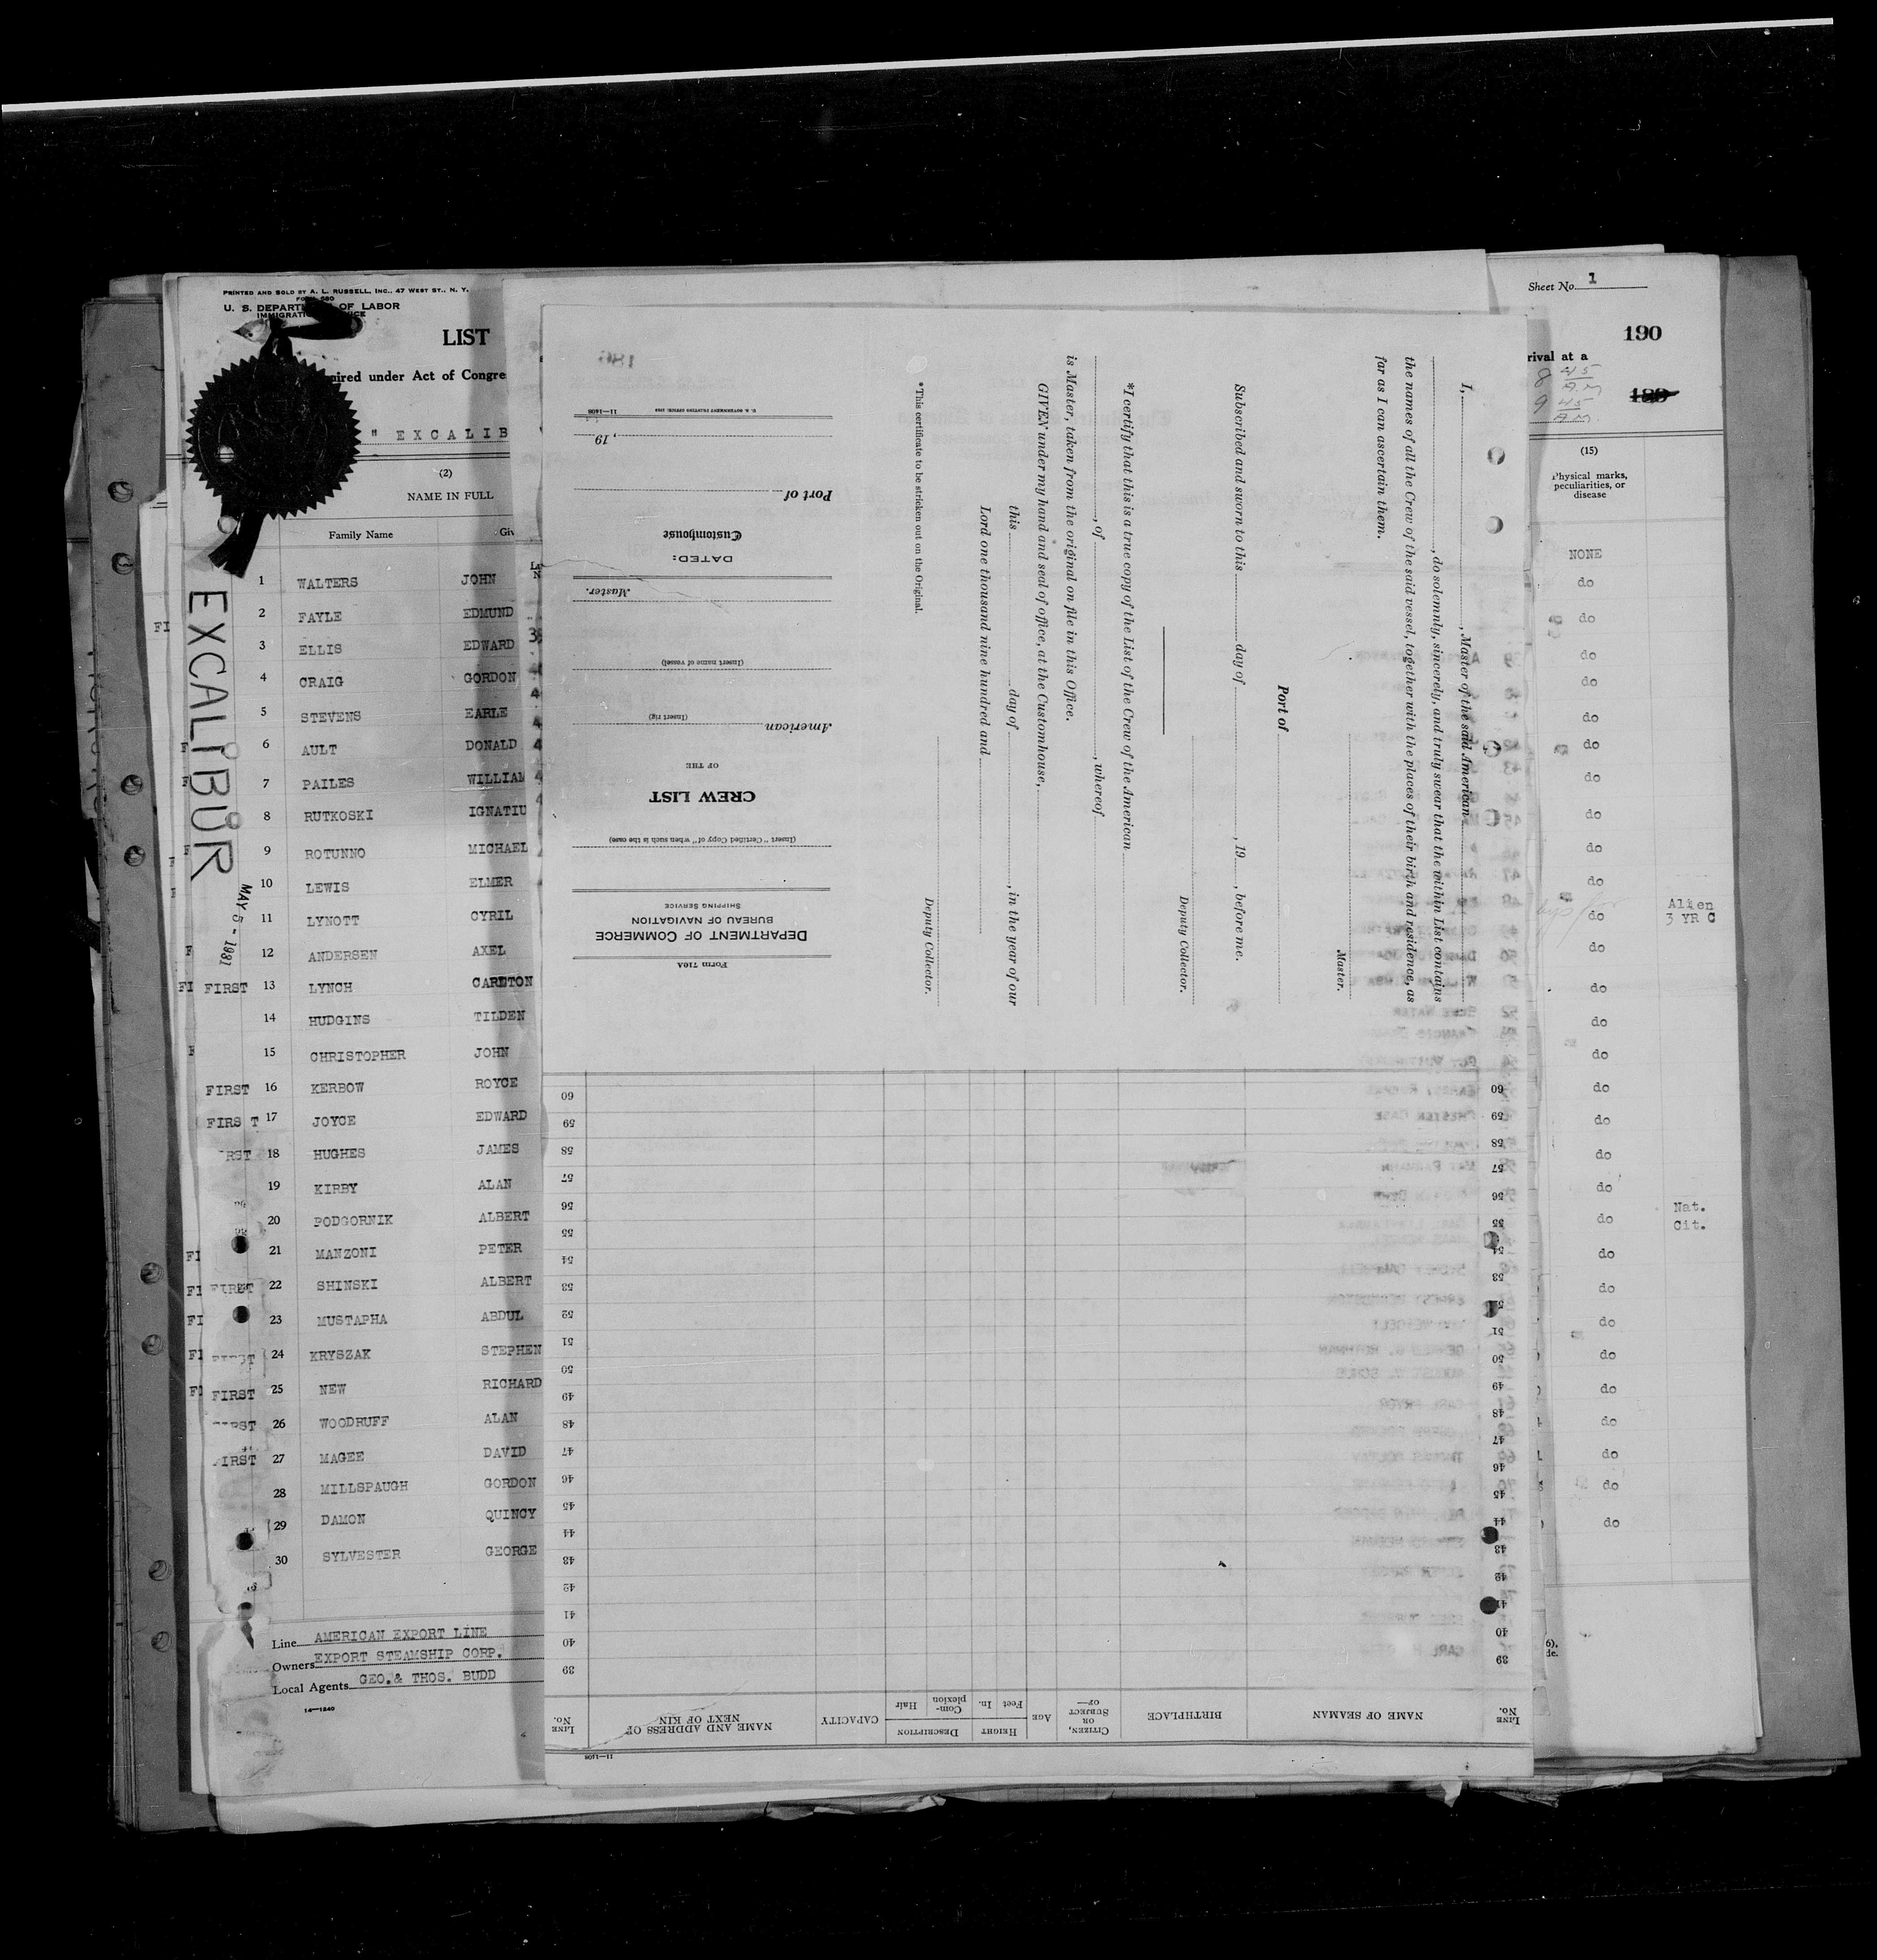 PRINTED AND SOLD BY A. L. RUSSELL, INC., 47 WEST ST., N. Y.
U. S. DEPART OF LABOR
LIST
ired under Act of Congre
" EXCALIB
(2)
NAME IN FULL
Family Name Giv
EXCALIBUR
MAY 5 - 1931
1 WALTERS JOHN
2 FAYLE EDMUND
3 ELLIS EDWARD
4 CRAIG GORDON
5 STEVENS EARLE
6 AULT DONALD
7 PAILES WILLIAM
8 RUTKOSKI IGNATIU
9 ROTUNNO MICHAEL
10 LEWIS ELMER
11 LYNOTT CYRIL
12 ANDERSEN AXEL
FIRST 13 LYNCH CARLTON
14 HUDGINS TILDEN
15 CHRISTOPHER JOHN
FIRST 16 KERBOW ROYCE
FIRS T 17 JOYCE EDWARD
RST 18 HUGHES JAMES
19 KIRBY ALAN
20 PODGORNIK ALBERT
21 MANZONI PETER
FIRST 22 SHINSKI ALBERT
23 MUSTAPHA ABDUL
24 KRYSZAK STEPHEN
FIRST 25 NEW RICHARD
26 WOODRUFF ALAN
FIRST 27 MAGEE DAVID
28 MILLSPAUGH GORDON
29 DAMON QUINCY
30 SYLVESTER GEORGE
Line AMERICAN EXPORT LINE
Owners EXPORT STEAMSHIP CORP.
Local Agents GEO. & THOS. BUDD
14—1240
Form 710A
DEPARTMENT OF COMMERCE
BUREAU OF NAVIGATION
SHIPPING SERVICE
(Insert "Certified Copy of" when such is the case)
CREW LIST
OF THE
American
(Insert rig)
(Insert name of vessel)
Master.
DATED:
Customhouse
Port of
, 19
U. S. GOVERNMENT PRINTING OFFICE: 11—1408
I, , Master of the said American
, do solemnly, sincerely, and truly swear that the within List contains
the names of all the Crew of the said vessel, together with the places of their birth and residence, as
far as I can ascertain them.
Master.
Port of
Subscribed and sworn to this day of , 19 , before me.
Deputy Collector.
*I certify that this is a true copy of the List of the Crew of the American
, of , whereof
is Master, taken from the original on file in this Office.
GIVEN under my hand and seal of office, at the Customhouse,
this day of , in the year of our
Lord one thousand nine hundred and
Deputy Collector.
*This certificate to be stricken out on the Original.
LINE No.
NAME OF SEAMAN
BIRTHPLACE
CITIZEN, OR SUBJECT OF—
AGE
HEIGHT
Feet In.
DESCRIPTION
Complexion Hair
CAPACITY
NAME AND ADDRESS OF NEXT OF KIN
LINE No.
39 39
40 40
41 41
42 42
43 43
44 44
45 45
46 46
47 47
48 48
49 49
50 50
51 51
52 52
53 53
54 54
55 55
56 56
57 57
58 58
59 59
60 60
11—1408
Sheet No. 1
190
rival at a
8 45 A.M
9 45 A.M.
189
(15)
Physical marks,
peculiarities, or
disease
NONE
do
do
do
do
do
do
do
do
do
do
do Alien
3 YR C
do
do
do
do
do
do
do
do
do Nat.
Cit.
do
do
do
do
do
do
do
do
do